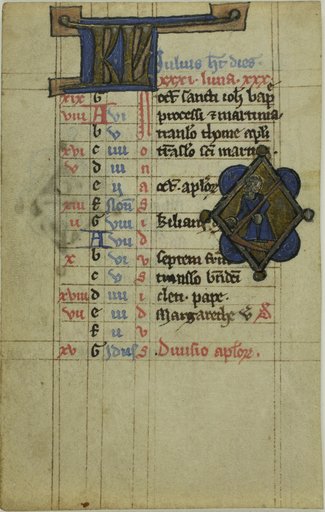 KL Iulius ht dies
xxxi. luna. xxx.
xix G oct sancti ioh bap
viii A vi processi & martinia
b v transło thome apli
xvi c iiii o trasło sci martin
d iii n
e ii a oct. apłor
iiii f Non s
ii G viii i kilian
A vii d
x b vi v septem frm
c v s transło bndci
xviii d iiii i cleti pape.
vii e iii d Margarethe v
f ii v
xv G Idus s Diuisio apłor.